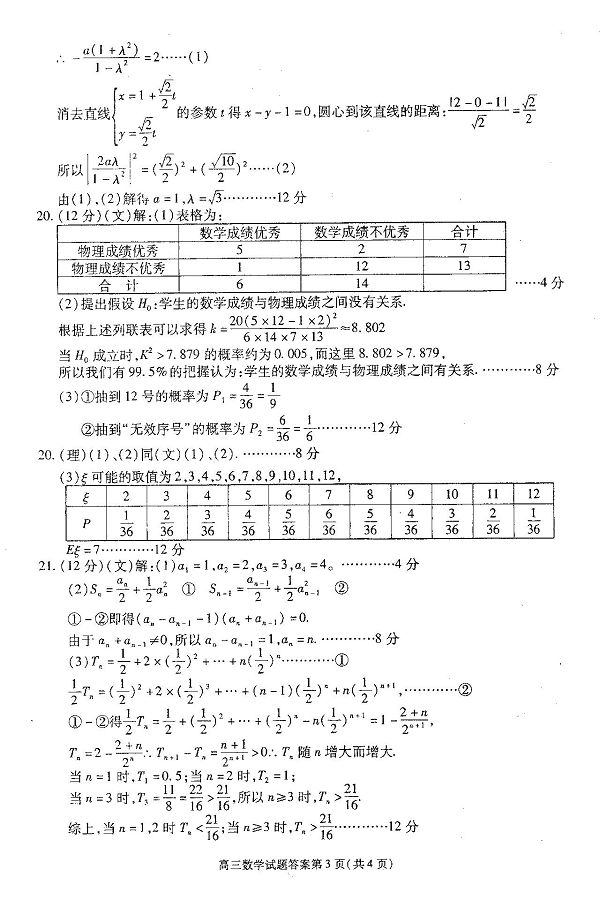 ∴ -a(1+λ²)/(1-λ²)=2……(1)
消去直线{x=1+(√2/2)t, y=(√2/2)t 的参数 t 得 x-y-1=0,圆心到该直线的距离:|2-0-1|/√2=√2/2
所以|2aλ/(1-λ²)|²=(√2/2)²+(√10/2)²……(2)
由(1)、(2)解得 a=1,λ=√3…………12 分
20.(12 分)(文)解:(1)表格为:
数学成绩优秀 数学成绩不优秀 合计
物理成绩优秀 5 2 7
物理成绩不优秀 1 12 13
合 计 6 14 ……4 分
(2)提出假设 H₀:学生的数学成绩与物理成绩之间没有关系.
根据上述列联表可以求得 k=20(5×12-1×2)²/(6×14×7×13)≈8.802
当 H₀ 成立时,K²>7.879 的概率约为 0.005,而这里 8.802>7.879,
所以我们有 99.5%的把握认为:学生的数学成绩与物理成绩之间有关系.…………8 分
(3)①抽到 12 号的概率为 P₁=4/36=1/9
②抽到“无效序号”的概率为 P₂=6/36=1/6…………12 分
20.(理)(1)、(2)同(文)(1)、(2).…………8 分
(3)ξ 可能的取值为 2,3,4,5,6,7,8,9,10,11,12,
ξ 2 3 4 5 6 7 8 9 10 11 12
P 1/36 2/36 3/36 4/36 5/36 6/36 5/36 4/36 3/36 2/36 1/36
Eξ=7…………12 分
21.(12 分)(文)解:(1)a₁=1,a₂=2,a₃=3,a₄=4。…………4 分
(2)Sₙ=aₙ/2+(1/2)aₙ² ① Sₙ₋₁=aₙ₋₁/2+(1/2)aₙ₋₁² ②
①-②即得(aₙ-aₙ₋₁-1)(aₙ+aₙ₋₁)=0.
由于 aₙ+aₙ₋₁≠0,所以 aₙ-aₙ₋₁=1,aₙ=n.…………8 分
(3)Tₙ=1/2+2×(1/2)²+…+n(1/2)ⁿ…………①
(1/2)Tₙ=(1/2)²+2×(1/2)³+…+(n-1)(1/2)ⁿ+n(1/2)ⁿ⁺¹,…………②
①-②得(1/2)Tₙ=1/2+(1/2)²+…+(1/2)ⁿ-n(1/2)ⁿ⁺¹=1-(2+n)/2ⁿ⁺¹,
Tₙ=2-(2+n)/2ⁿ∴Tₙ₊₁-Tₙ=(n+1)/2ⁿ⁺¹>0∴Tₙ 随 n 增大而增大.
当 n=1 时,T₁=0.5;当 n=2 时,T₂=1;
当 n=3 时,T₃=11/8=22/16>21/16,所以 n≥3 时,Tₙ>21/16.
综上,当 n=1,2 时 Tₙ<21/16;当 n≥3 时,Tₙ>21/16…………12 分
高三数学试题答案第 3 页(共 4 页)